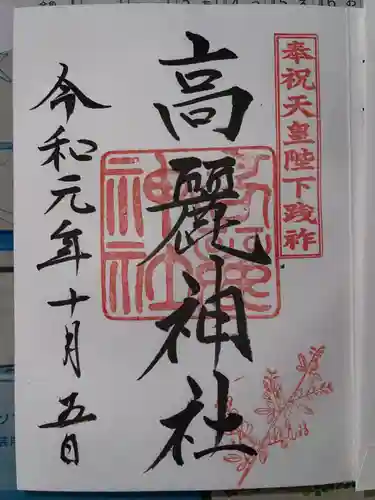 奉祝天皇陛下践祚
高麗神社
高麗神社
令和元年十月五日